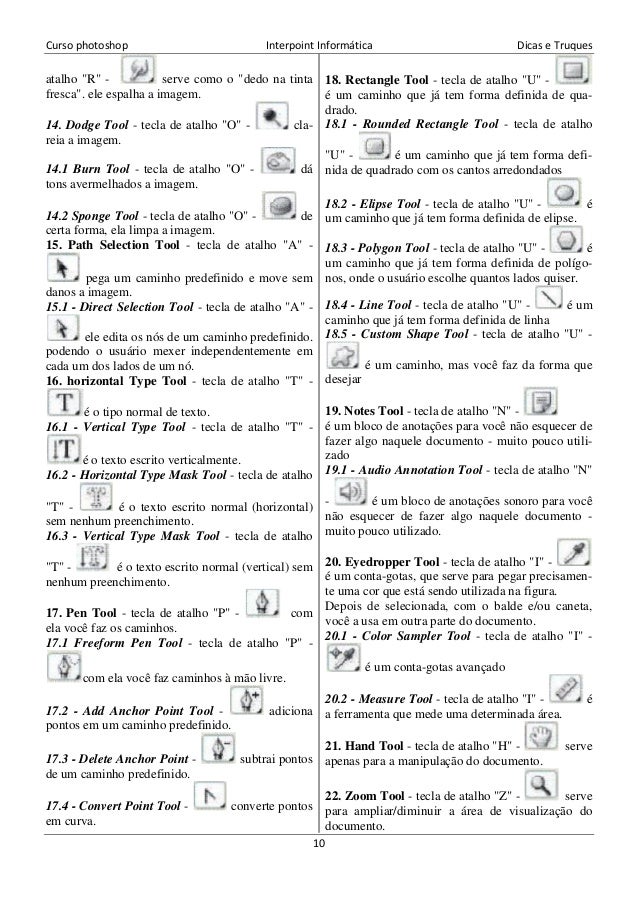 Curso photoshop Interpoint Informática Dicas e Truques
atalho "R" - serve como o "dedo na tinta
fresca". ele espalha a imagem.
14. Dodge Tool - tecla de atalho "O" - cla-
reia a imagem.
14.1 Burn Tool - tecla de atalho "O" - dá
tons avermelhados a imagem.
14.2 Sponge Tool - tecla de atalho "O" - de
certa forma, ela limpa a imagem.
15. Path Selection Tool - tecla de atalho "A" -
pega um caminho predefinido e move sem
danos a imagem.
15.1 - Direct Selection Tool - tecla de atalho "A" -
ele edita os nós de um caminho predefinido.
podendo o usuário mexer independentemente em
cada um dos lados de um nó.
16. horizontal Type Tool - tecla de atalho "T" -
T é o tipo normal de texto.
16.1 - Vertical Type Tool - tecla de atalho "T" -
T é o texto escrito verticalmente.
16.2 - Horizontal Type Mask Tool - tecla de atalho
"T" - T é o texto escrito normal (horizontal)
sem nenhum preenchimento.
16.3 - Vertical Type Mask Tool - tecla de atalho
"T" - T é o texto escrito normal (vertical) sem
nenhum preenchimento.
17. Pen Tool - tecla de atalho "P" - com
ela você faz os caminhos.
17.1 Freeform Pen Tool - tecla de atalho "P" -
com ela você faz caminhos à mão livre.
17.2 - Add Anchor Point Tool - adiciona
pontos em um caminho predefinido.
17.3 - Delete Anchor Point - subtrai pontos
de um caminho predefinido.
17.4 - Convert Point Tool - converte pontos
em curva.
18. Rectangle Tool - tecla de atalho "U" -
é um caminho que já tem forma definida de qua-
drado.
18.1 - Rounded Rectangle Tool - tecla de atalho
"U" - é um caminho que já tem forma defi-
nida de quadrado com os cantos arredondados
18.2 - Elipse Tool - tecla de atalho "U" - é
um caminho que já tem forma definida de elipse.
18.3 - Polygon Tool - tecla de atalho "U" - é
um caminho que já tem forma definida de polígo-
nos, onde o usuário escolhe quantos lados quiser.
18.4 - Line Tool - tecla de atalho "U" - é um
caminho que já tem forma definida de linha
18.5 - Custom Shape Tool - tecla de atalho "U" -
é um caminho, mas você faz da forma que
desejar
19. Notes Tool - tecla de atalho "N" -
é um bloco de anotações para você não esquecer de
fazer algo naquele documento - muito pouco utili-
zado
19.1 - Audio Annotation Tool - tecla de atalho "N"
- é um bloco de anotações sonoro para você
não esquecer de fazer algo naquele documento -
muito pouco utilizado.
20. Eyedropper Tool - tecla de atalho "I" -
é um conta-gotas, que serve para pegar precisamen-
te uma cor que está sendo utilizada na figura.
Depois de selecionada, com o balde e/ou caneta,
você a usa em outra parte do documento.
20.1 - Color Sampler Tool - tecla de atalho "I" -
é um conta-gotas avançado
20.2 - Measure Tool - tecla de atalho "I" - é
a ferramenta que mede uma determinada área.
21. Hand Tool - tecla de atalho "H" - serve
apenas para a manipulação do documento.
22. Zoom Tool - tecla de atalho "Z" - serve
para ampliar/diminuir a área de visualização do
documento.
10